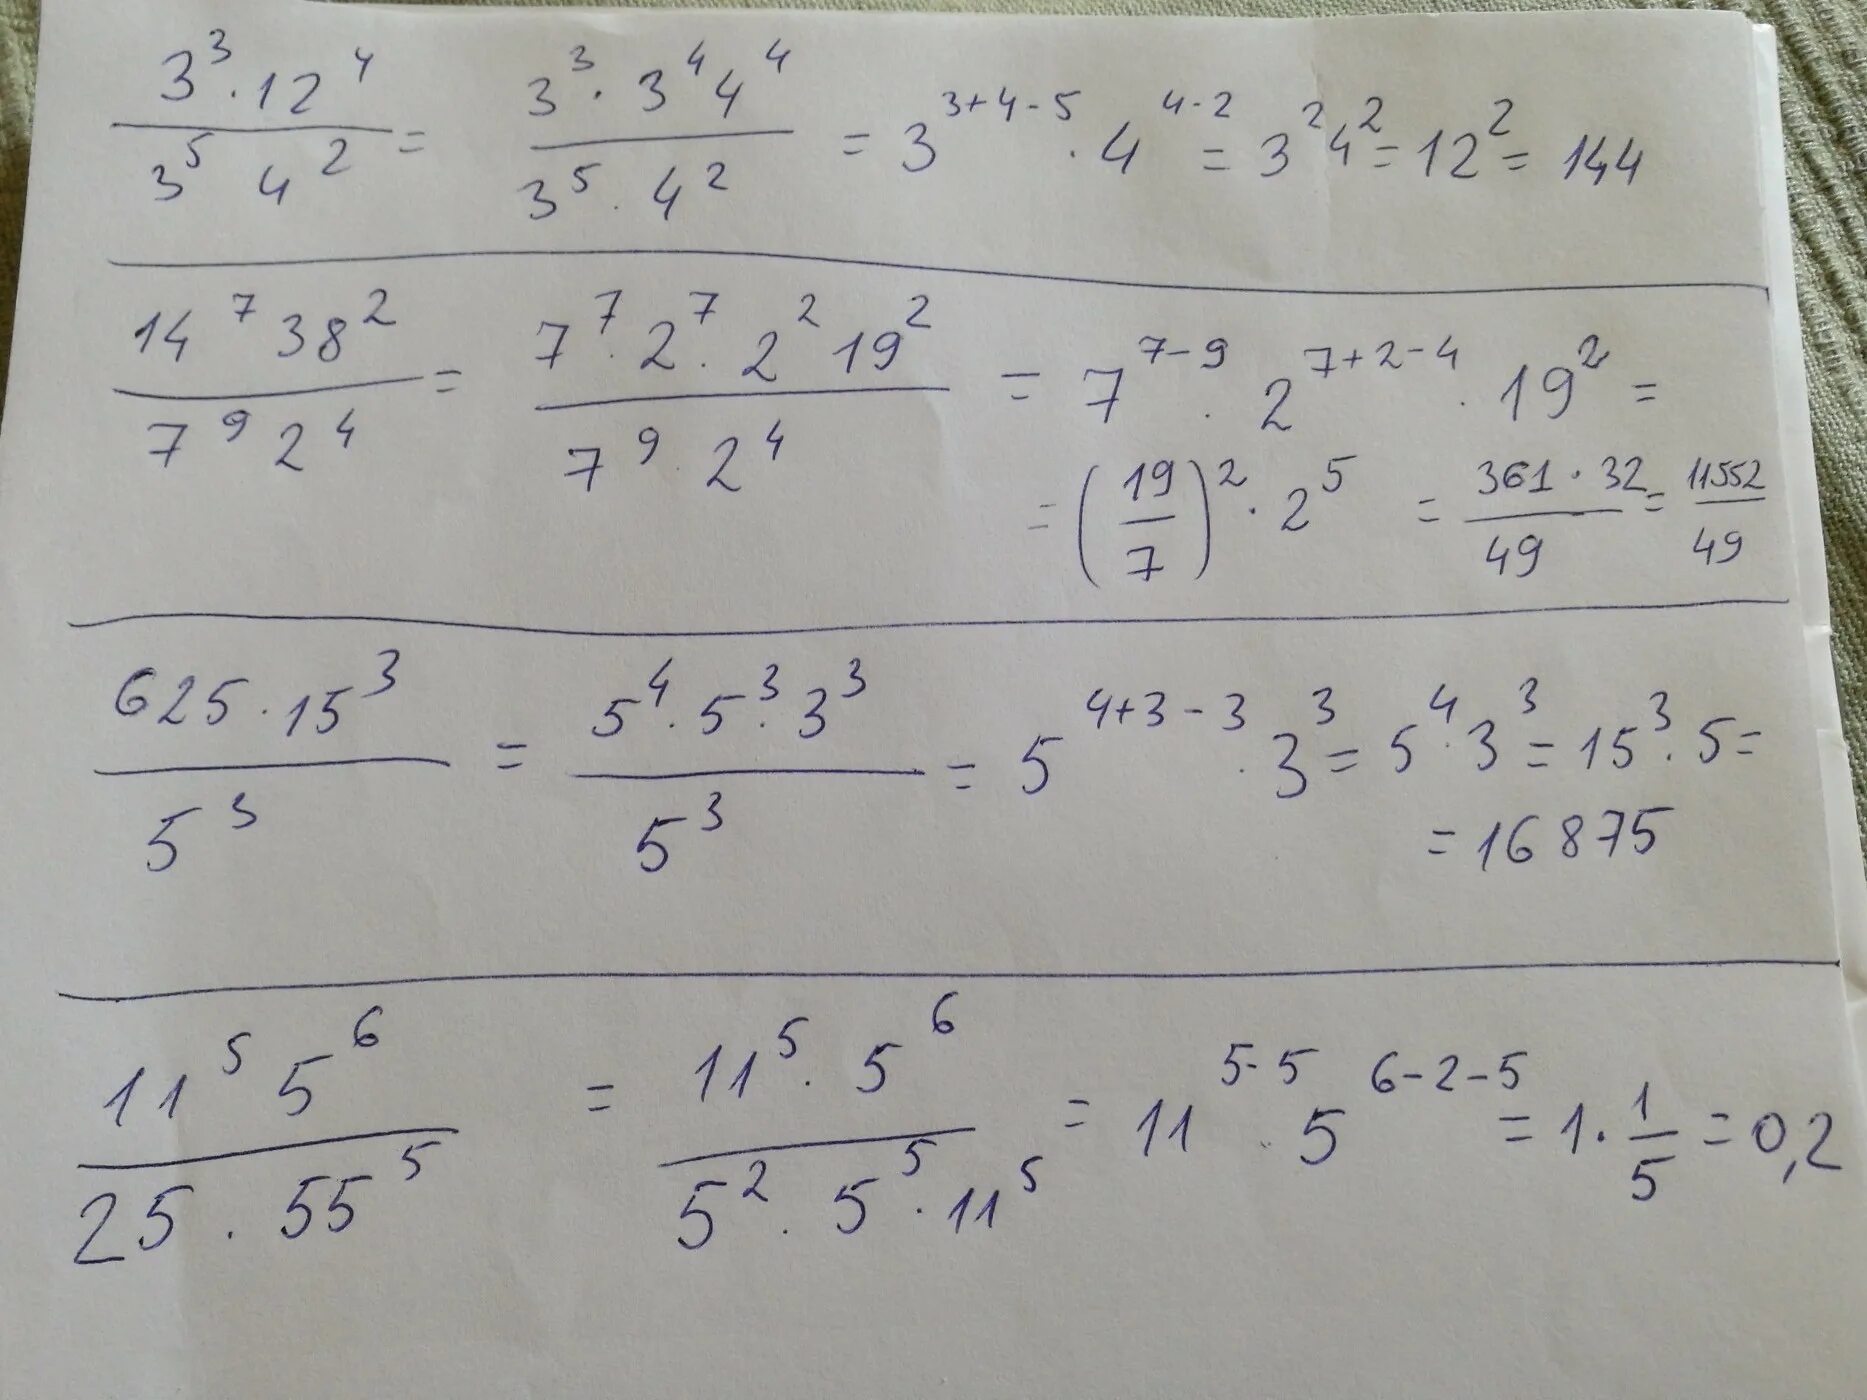 3³ · 12⁴ / 3⁵ 4² = 3³ · 3⁴ 4⁴ / 3⁵ · 4² = 3³⁺⁴⁻⁵ · 4⁴⁻² = 3² 4² = 12² = 144
14⁷ 38² / 7⁹ 2⁴ = 7⁷ · 2⁷ · 2² 19² / 7⁹ · 2⁴ = 7⁷⁻⁹ · 2⁷⁺²⁻⁴ · 19² =
= (19/7)² · 2⁵ = 361 · 32 / 49 = 11552 / 49
625 · 15³ / 5³ = 5⁴ · 5³ · 3³ / 5³ = 5⁴⁺³⁻³ · 3³ = 5⁴ · 3³ = 15³ · 5 =
= 16875
11⁵ 5⁶ / 25 · 55⁵ = 11⁵ · 5⁶ / 5² · 5⁵ · 11⁵ = 11⁵⁻⁵ · 5⁶⁻²⁻⁵ = 1 · 1/5 = 0,2